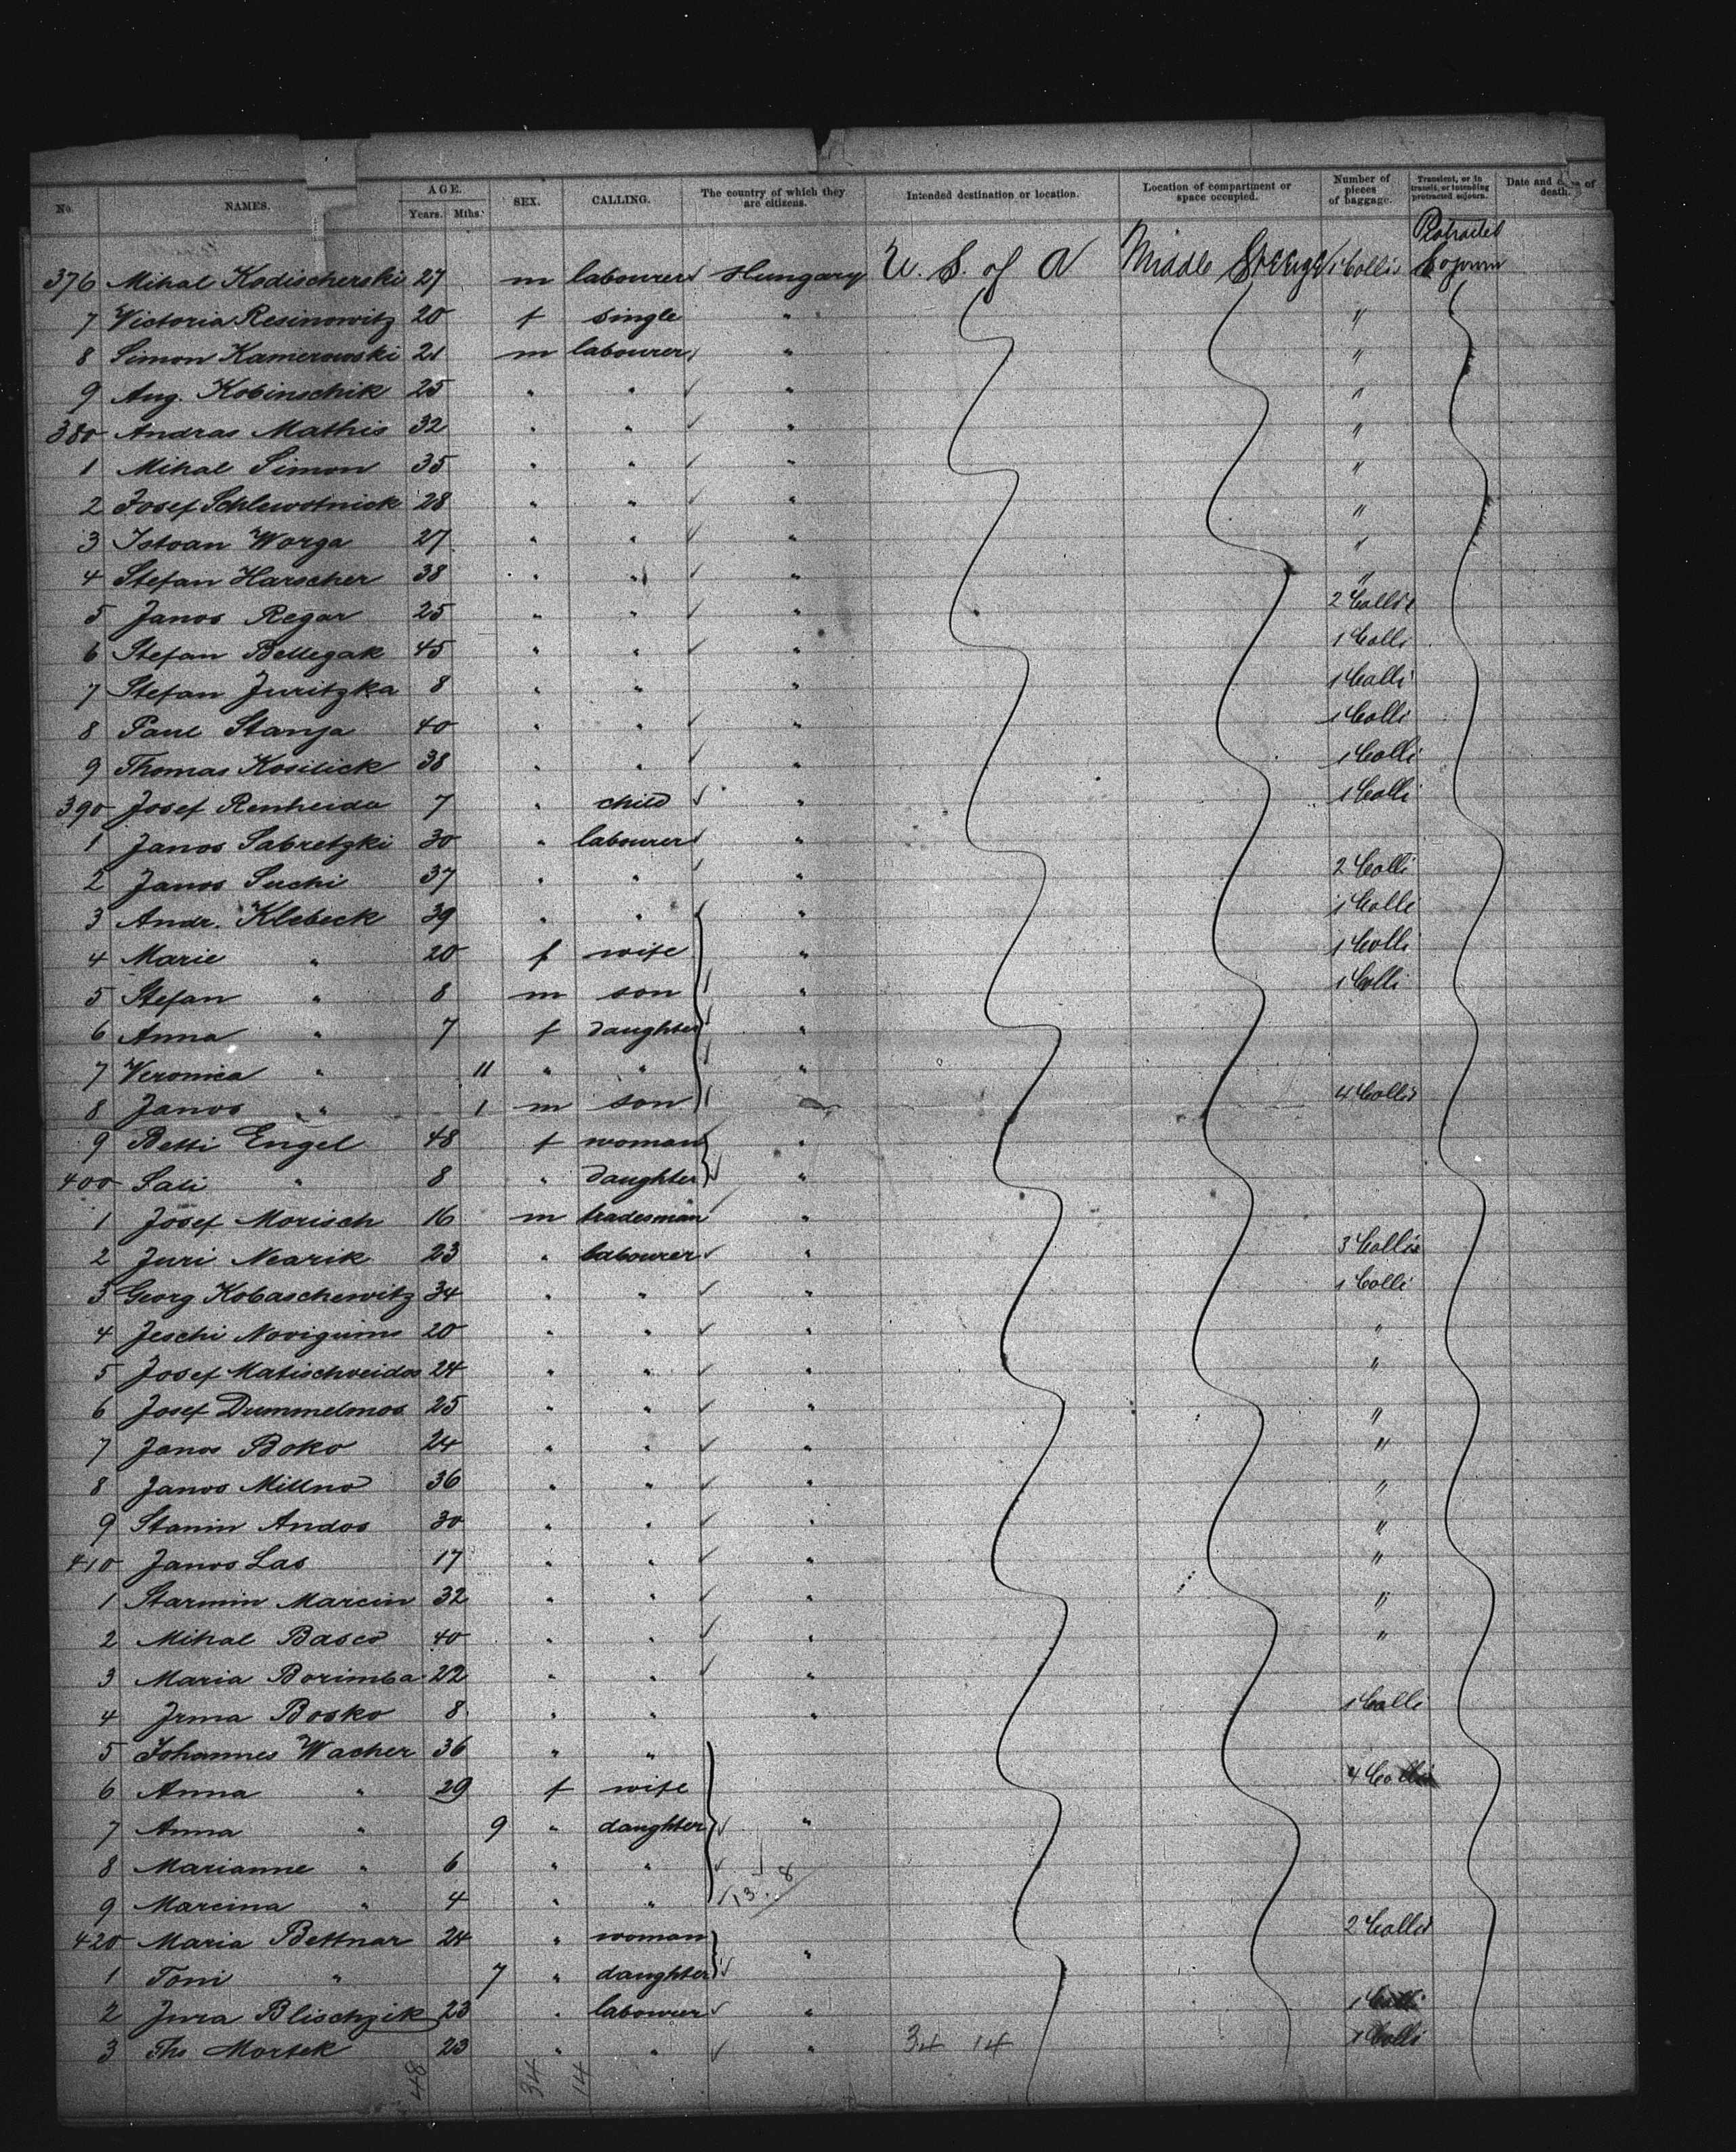 No. NAMES. AGE. Years. Mths. SEX. CALLING. The country of which they are citizens. Intended destination or location. Location of compartment or space occupied. Number of pieces of baggage. Transient, or in transit, or intending protracted sojourn. Date and of death.
376 Mihal Kodischerski 27 m labourer Hungary U. S. of A Middle Steerage 1 Colli Protracted Sojourn
7 Victoria Resinowitz 20 f single " "
8 Simon Kamerowski 21 m labourer " "
9 Aug. Kobinschik 25 " " " "
380 Andras Mathis 32 " " " "
1 Mihal Simon 35 " " " "
2 Josef Schlewotnick 28 " " " "
3 Istvan Worga 27 " " " "
4 Stefan Harscher 38 " " " "
5 Janos Regar 25 " " " 2 Collis
6 Stefan Bellegak 45 " " " 1 Colli
7 Stefan Juritzka 8 " " " 1 Colli
8 Paul Stanja 40 " " " 1 Colli
9 Thomas Kosilick 38 " " " 1 Colli
390 Josef Renheida 7 " child " 1 Colli
1 Janos Sabretzki 30 " labourer "
2 Janos Suchi 37 " " " 2 Colli
3 Andr. Klebeck 39 " " " 1 Colli
4 Marie " 20 f wife " 1 Colli
5 Stefan " 8 m son " 1 Colli
6 Anna " 7 f daughter "
7 Veronica " 11 " " "
8 Janos " 1 m son " 4 Collis
9 Betti Engel 48 f woman "
400 Sali " 8 " daughter "
1 Josef Morisch 16 m tradesman "
2 Juri Nearik 23 " labourer " 3 Collis
3 Georg Kobaschewitz 34 " " " 1 Colli
4 Jeschi Novigums 20 " " " "
5 Josef Matischveidos 24 " " " "
6 Josef Dummelmos 25 " " " "
7 Janos Boko 24 " " " "
8 Janos Millno 36 " " " "
9 Stanin Andos 30 " " " "
410 Janos Las 17 " " " "
1 Starmin Marcin 32 " " " "
2 Mihal Basco 40 " " " "
3 Maria Borimba 22 " " "
4 Irma Bosko 8 " " " 1 Colli
5 Johannes Wacher 36 " "
6 Anna " 29 f wife 4 Collis
7 Anna " 9 " daughter "
8 Marianne " 6 " "
9 Marcina " 4 " "
420 Maria Bettnar 24 " woman " 2 Collis
1 Toni " 7 " daughter
2 Jura Blischzik 23 " labourer " 1 Colli
3 Ths Mortek 23 " " " 34 14 1 Colli
48 34 14